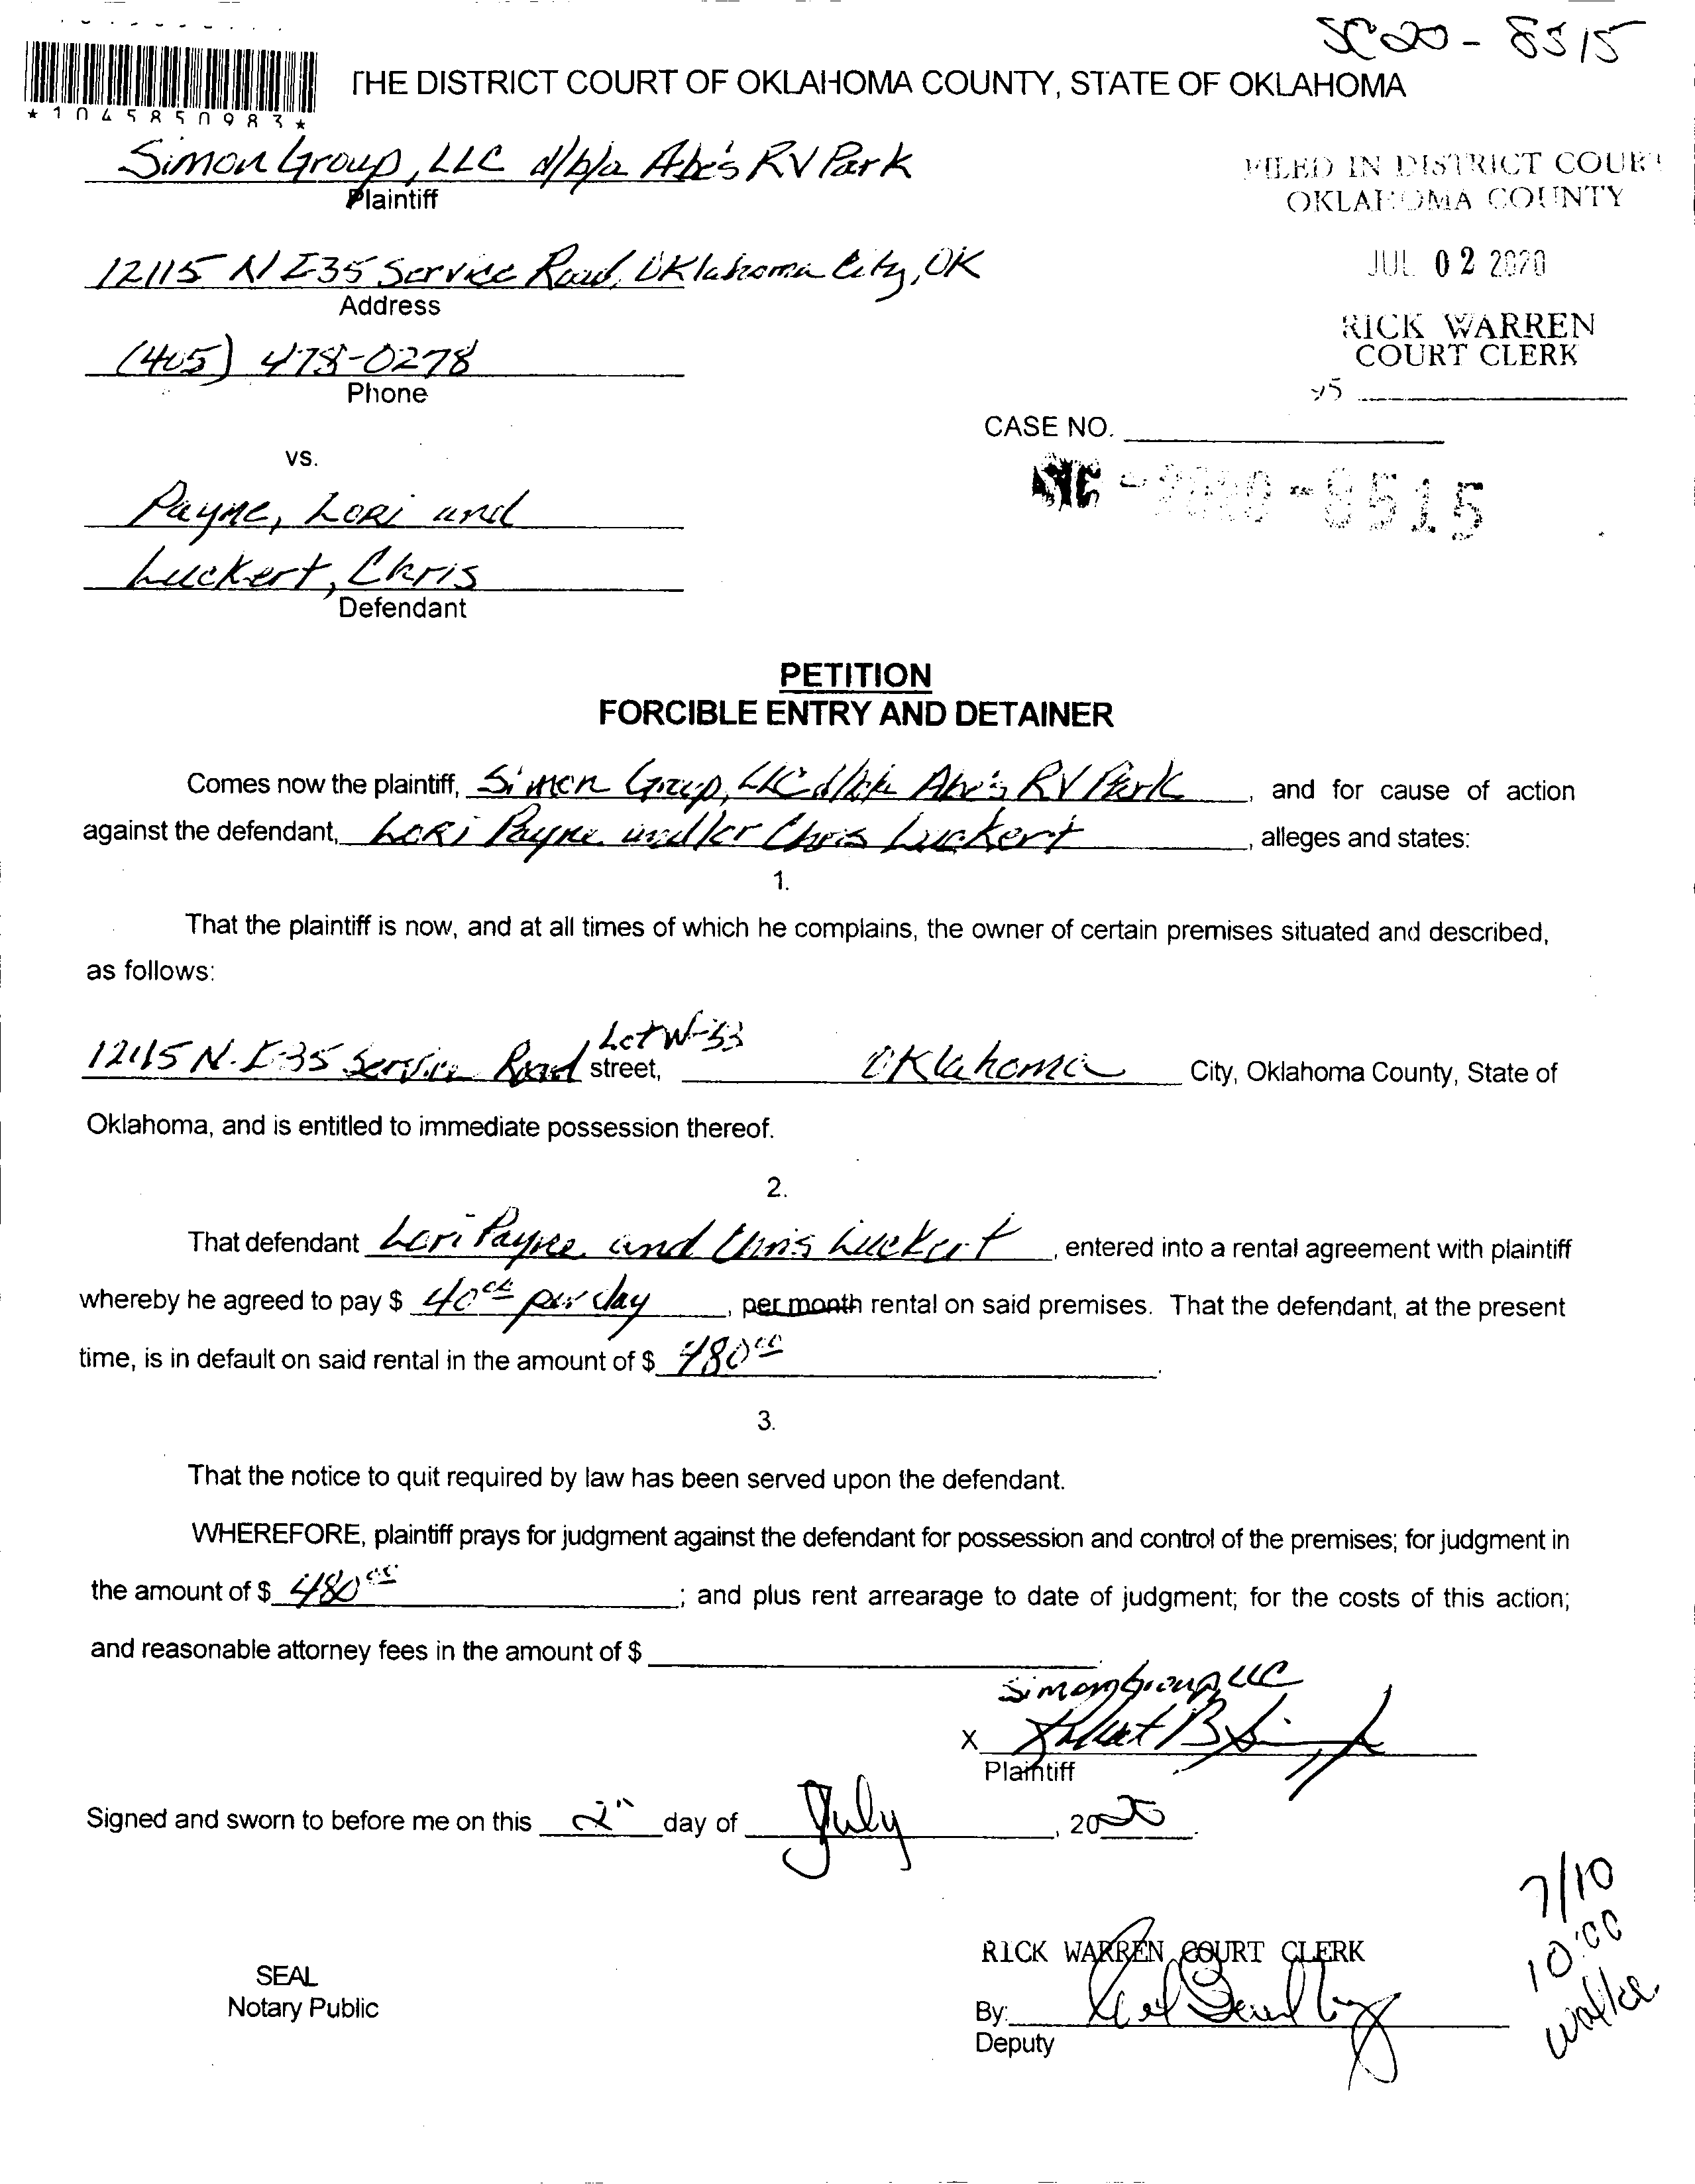 SC20-8515
THE DISTRICT COURT OF OKLAHOMA COUNTY, STATE OF OKLAHOMA
*1045850983*
Simon Group, LLC d/b/a Abe's RV Park
Plaintiff
FILED IN DISTRICT COURT
OKLAHOMA COUNTY
12115 N I-35 Service Road, Oklahoma City, OK
Address
JUL 02 2020
(405) 478-0278
Phone
RICK WARREN
COURT CLERK
CASE NO.
vs.
SC-2020-8515
Payne, Lori and
Luckert, Chris
Defendant
PETITION
FORCIBLE ENTRY AND DETAINER
Comes now the plaintiff, Simon Group, LLC d/b/a Abe's RV Park, and for cause of action
against the defendant, Lori Payne and/or Chris Luckert, alleges and states:
1.
That the plaintiff is now, and at all times of which he complains, the owner of certain premises situated and described,
as follows:
12115 N. I-35 Service Road street, Lot W-33 Oklahoma City, Oklahoma County, State of
Oklahoma, and is entitled to immediate possession thereof.
2.
That defendant Lori Payne and Chris Luckert, entered into a rental agreement with plaintiff
whereby he agreed to pay $ 40.00 per day, per month rental on said premises. That the defendant, at the present
time, is in default on said rental in the amount of $ 480.00.
3.
That the notice to quit required by law has been served upon the defendant.
WHEREFORE, plaintiff prays for judgment against the defendant for possession and control of the premises; for judgment in
the amount of $ 480.00; and plus rent arrearage to date of judgment; for the costs of this action;
and reasonable attorney fees in the amount of $
Simon Group, LLC
X
Plaintiff
Signed and sworn to before me on this 2nd day of July, 2020.
7/10
10:00
RICK WARREN COURT CLERK
SEAL
Notary Public
By:
Deputy